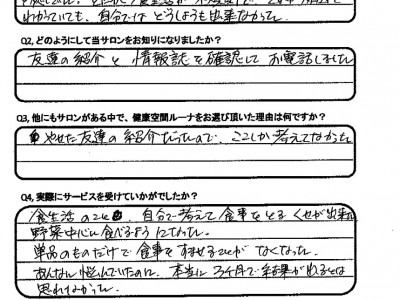 わかっていても、自分ではどうしようも出来なかった。
Q2, どのようにして当サロンをお知りになりましたか？
友達の紹介と情報誌を確認してお電話しました
Q3, 他にもサロンがある中で、健康空間ルーナをお選び頂いた理由は何ですか？
やせた友達の紹介だったので、ここしか考えてなかった
Q4, 実際にサービスを受けていかがでしたか？
食生活のこと、自分で考えて食事をとるくせが出来た
野菜中心に食べるようになった。
単品のものだけで食事をすませることがなくなった。
あんなに悩んでいたのに、本当に3ヶ月で結果が出るとは
思わなかった。